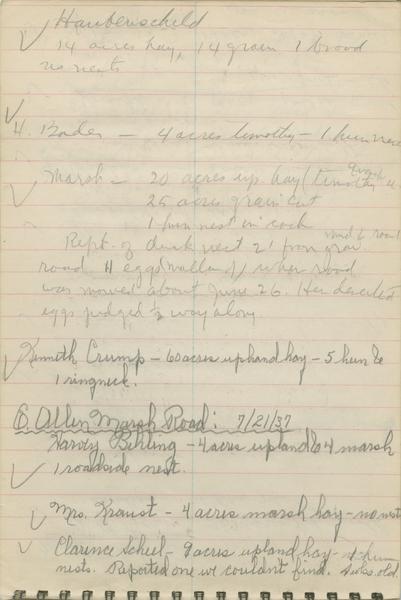 Haubenschild
14 acres hay, 14 grain 1 brood
no nests
H. Bader - 4 acres timothy - 1 hun nest
Marsh - 20 acres up. hay (timothy
25 acres grain cut
1 hun nest in cock
Rept. of duck nest 2' from grav.
road 11 eggs (mallard) when road
was mowed about June 26. Hen deserted
eggs judged ½ way along
Kenneth Crump - 60 acres upland hay - 5 hun &
1 ringneck.
E. Allen Marsh Road: 7/21/37
Harvey Behling - 4 acres upland & 4 marsh
1 roadside nest.
Mrs. Kraust - 4 acres marsh hay - no nest
Clarence Scheel - 9 acres upland hay - hun
nests. Reported one we couldn't find. old.